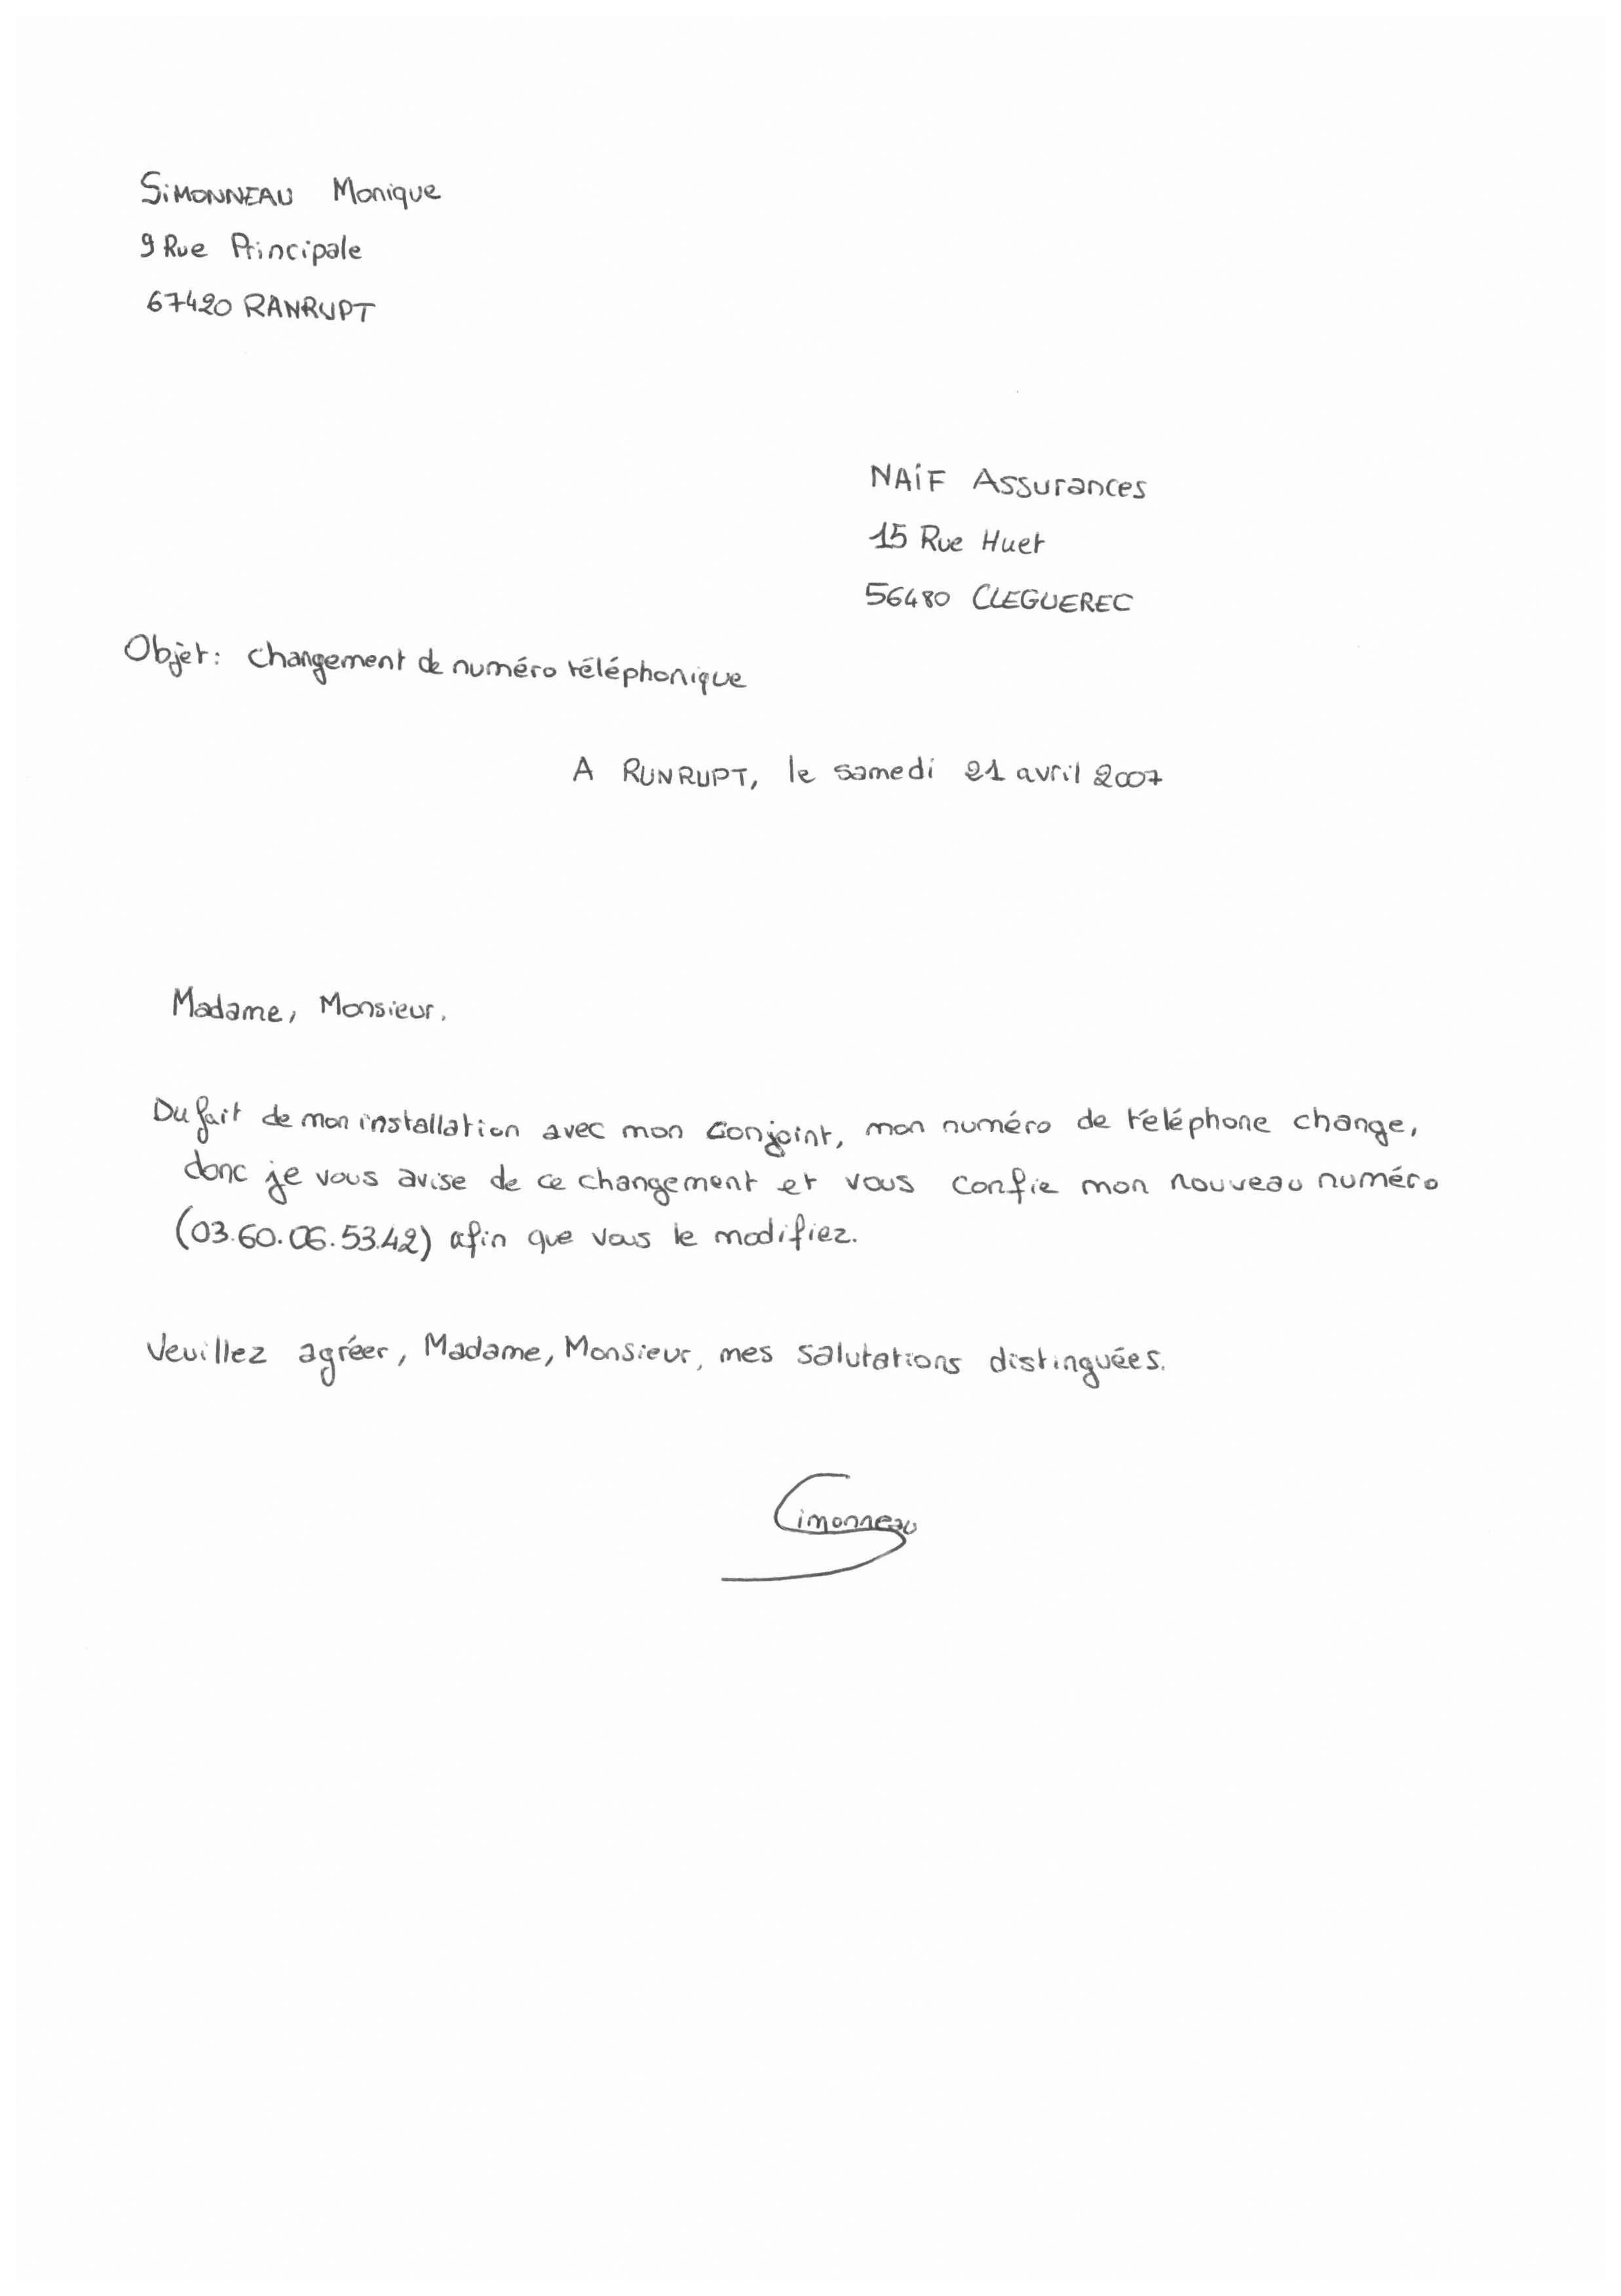 SiMONNEAU Monique
9 Rue Principale
67420 RANRUPT
NAiF Assurances
15 Rue Huet
56480 CLEGUEREC
Objet: changement de numéro téléphonique
A RUNRUPT, le samedi 21 avril 2007
Madame, Monsieur.
Du fait de mon installation avec mon conjoint, mon numéro de téléphone change,
donc je vous avise de ce changement et vous confie mon nouveau numéro
(03.60.06.53.42) afin que vous le modifiez.
Veuillez agréer, Madame, Monsieur, mes salutations distinguées.
Simonneau